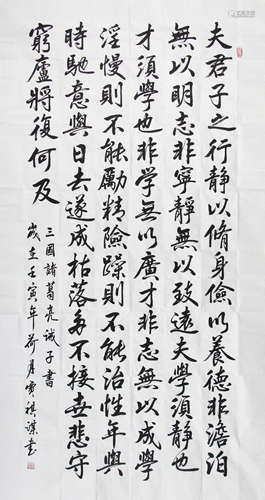 夫君子之行靜以脩身儉以養德非澹泊
無以明志非寧靜無以致遠夫學須靜也
才須學也非學無以廣才非志無以成學
淫慢則不能勵精險躁則不能治性年與
時馳意與日去遂成枯落多不接世悲守
窮廬將復何及
三國諸葛亮誡子書
歲在壬寅年荷月書